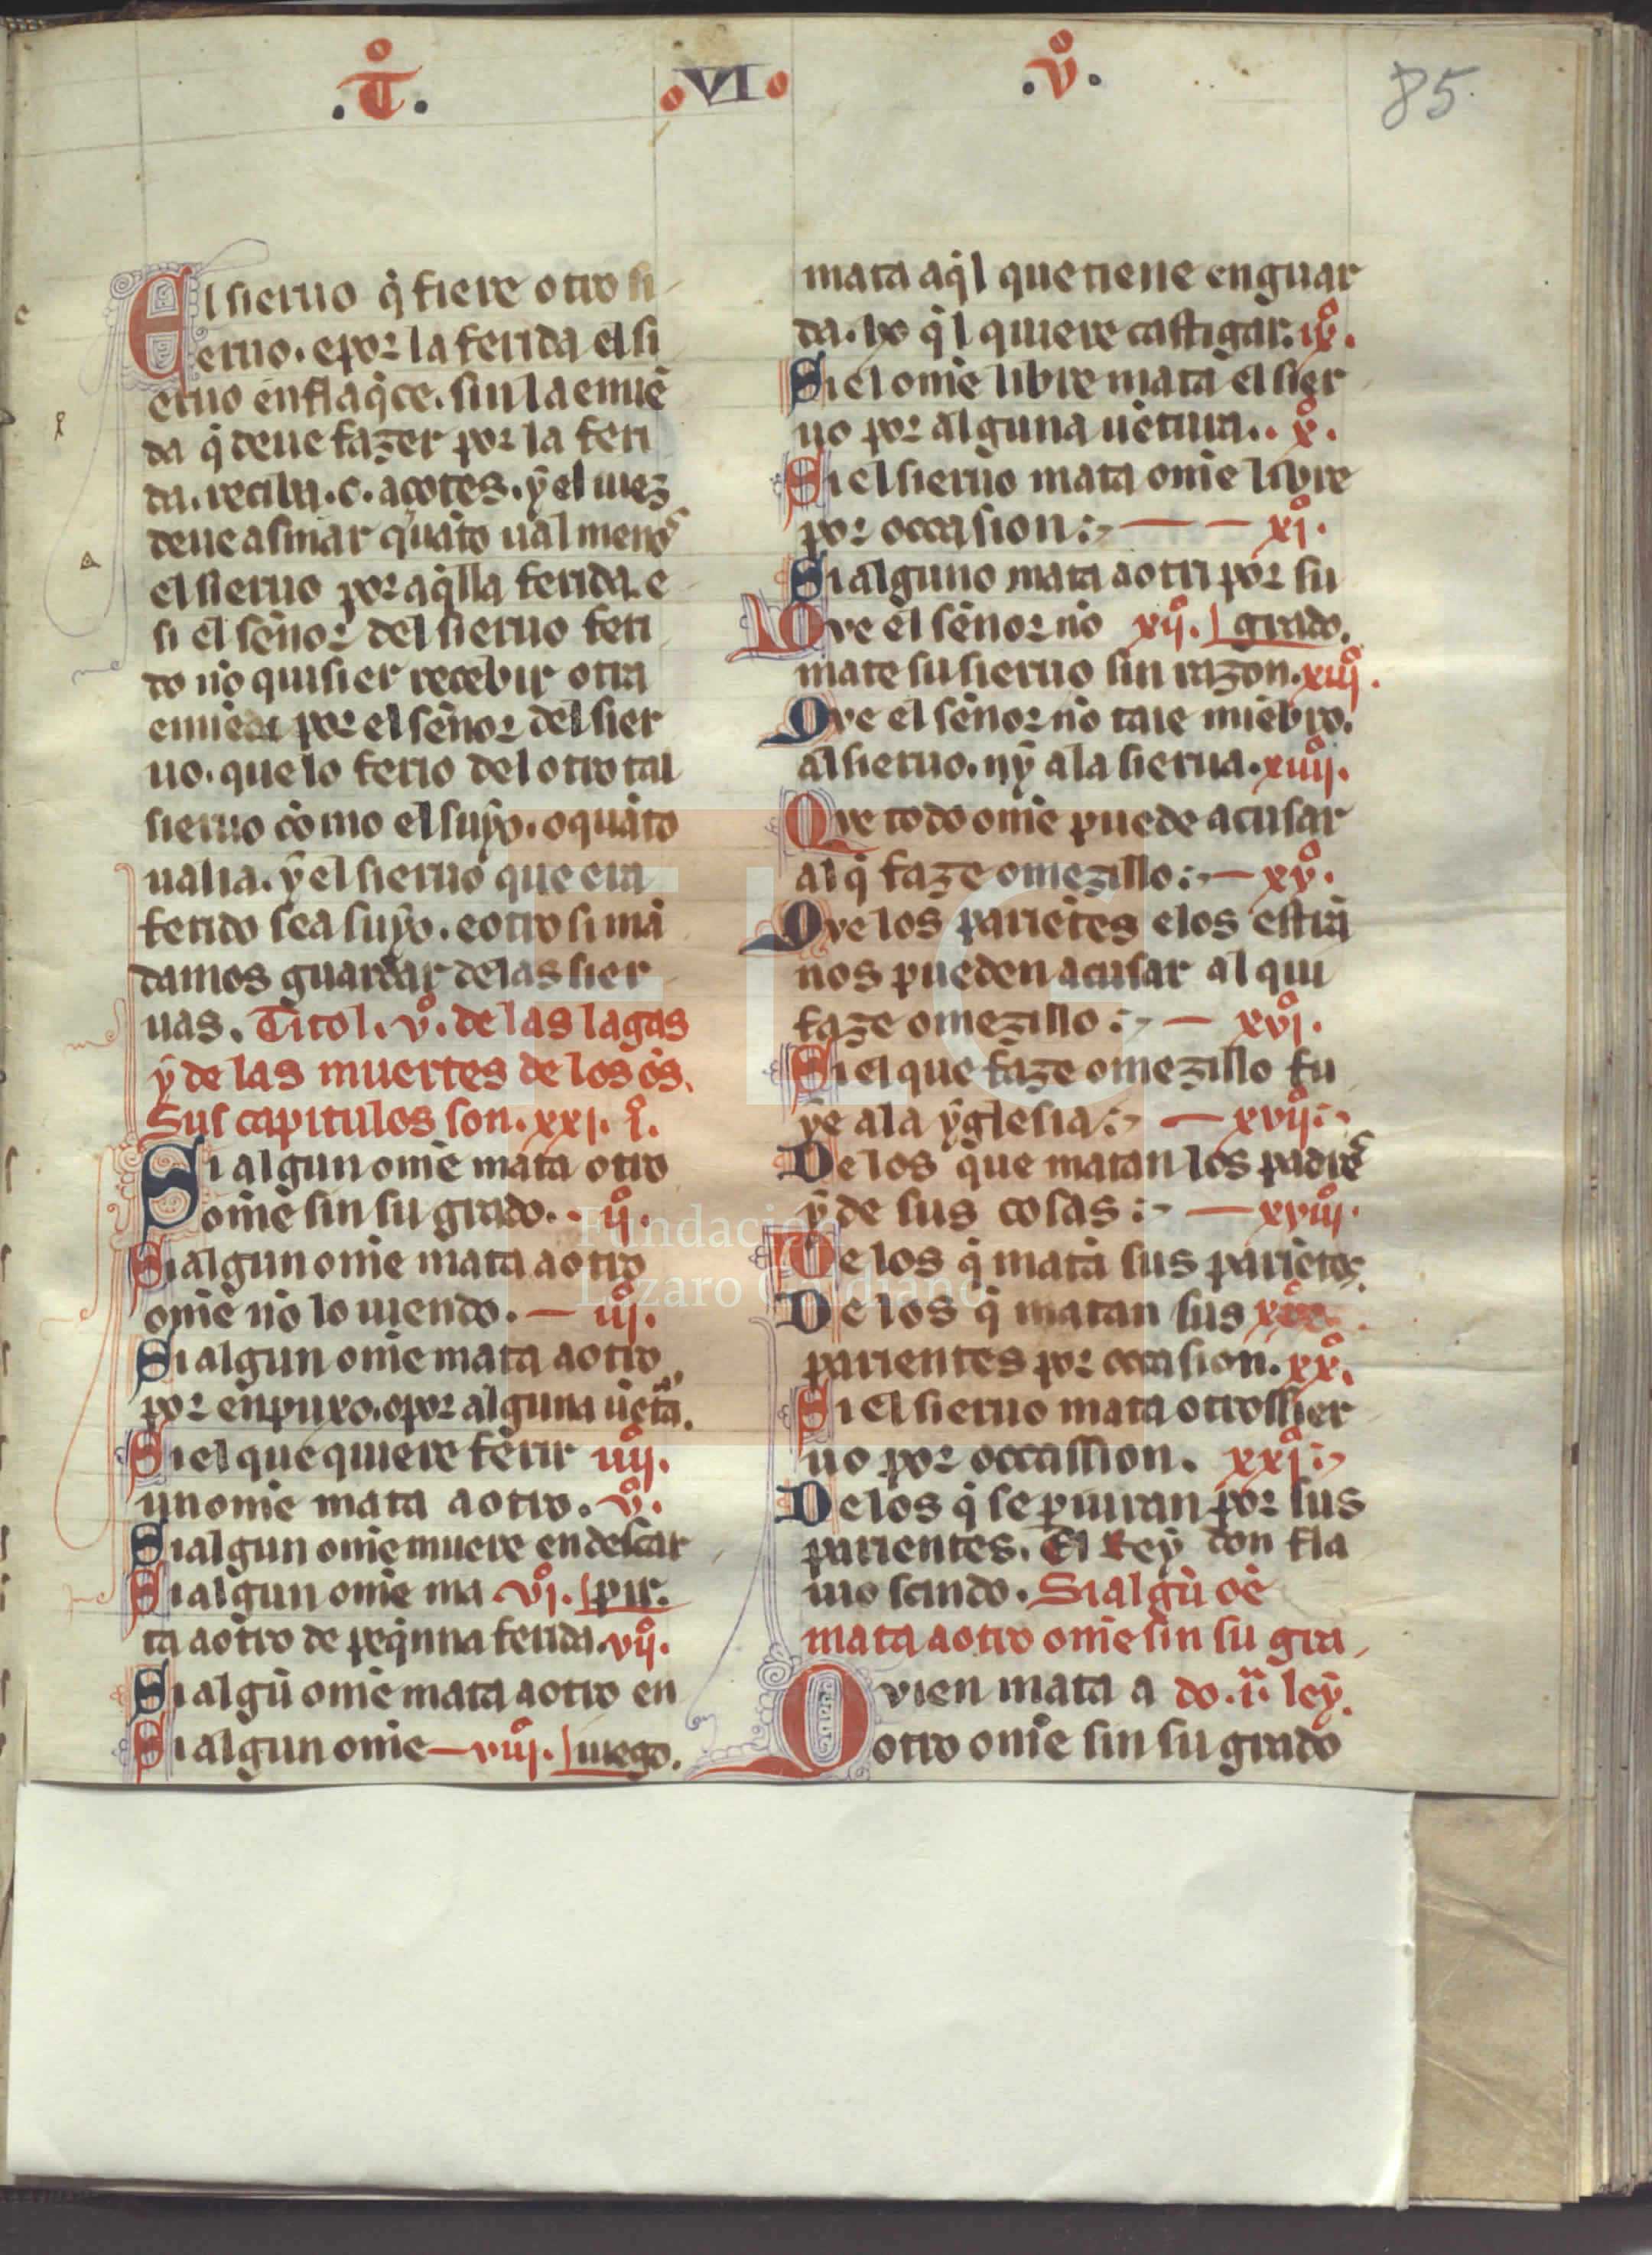 .T̊. .VI. .v̊.
85.
El sieruo q̇ fiere otro si
eruo. epor la ferida el si
eruo enflaq̇ce. sin la emiē
da q̇ deue fazer por la feri
da. reciba .c. açotes. ẏ el iuez
deue asmar quāto ual menos
el sieruo por aq̇lla ferida. e
si el sēnor del sieruo feri
do nō quisier recebir otra
emiēda por el sēnor del sier
uo. que lo ferio del otro tal
sieruo cōmo el suẏo. o quāto
ualia. ẏ el sieruo que era
ferido sea suẏo. e otro si mā
damos guardar delas sier
uas. Titol. v̊. de las lagas
ẏ de las muertes de los ōs.
Sus capitulos son. xxi. i̊.
Si algun om̄e mata otro
om̄e sin su grado. - ij̊.
Si algun om̄e mata aotro
om̄e nō lo uiendo. — iij̊.
Si algun om̄e mata aotro
por enpuxo. opor alguna uētᵃ.
Si el que quiere ferir iiij̊.
un om̄e mata aotro. v̊.
Si algun om̄e muere en descar
Si algun om̄e ma vj̊. pir.
ta aotro de peq̇nna ferida. vij̊.
Si algū om̄e mata aotro en
Si algun om̄e — viij̊. iuego.
mata aq̇l que tiene en guar
da. ho q̇l quiere castigar. ix̊.
Si el om̄e libre mata el sier
uo por alguna uētura.. x̊.
Si el sieruo mata om̄e libre
por occasion :- — — xj̊.
Si alguno mata aotri por su
Que el sēnor nō xij̊. grado.
mate su sieruo sin razon. xiij̊.
Que el sēnor nō taie miēbro.
al sieruo. nẏ ala sierua. xiiij̊.
Que todo om̄e puede acusar
al q̇ faze omezillo :- — xv̊.
Que los pariētes elos estrā
nos pueden acusar al qui
faze omezillo :- — xvj̊.
Si el que faze omezillo fu
ẏe ala ẏglesia :- — xvij̊ :-
De los que matan los padres
ẏ de sus cosas :- — xviij̊.
De los q̇ matā sus pariētes.
De los q̇ matan sus
parientes por occasion. xx̊.
Si el sieruo mata otro sier
uo por occassion. xxj̊ :-
De los q̇ se periuran por sus
parientes. El Rey don fla
uio scindo. Si algū oē
mata aotro om̄e sin su gra
Quien mata a do. i̎. leẏ.
otro om̄e sin su grado
Fundación
Lázaro Galdiano
FLG